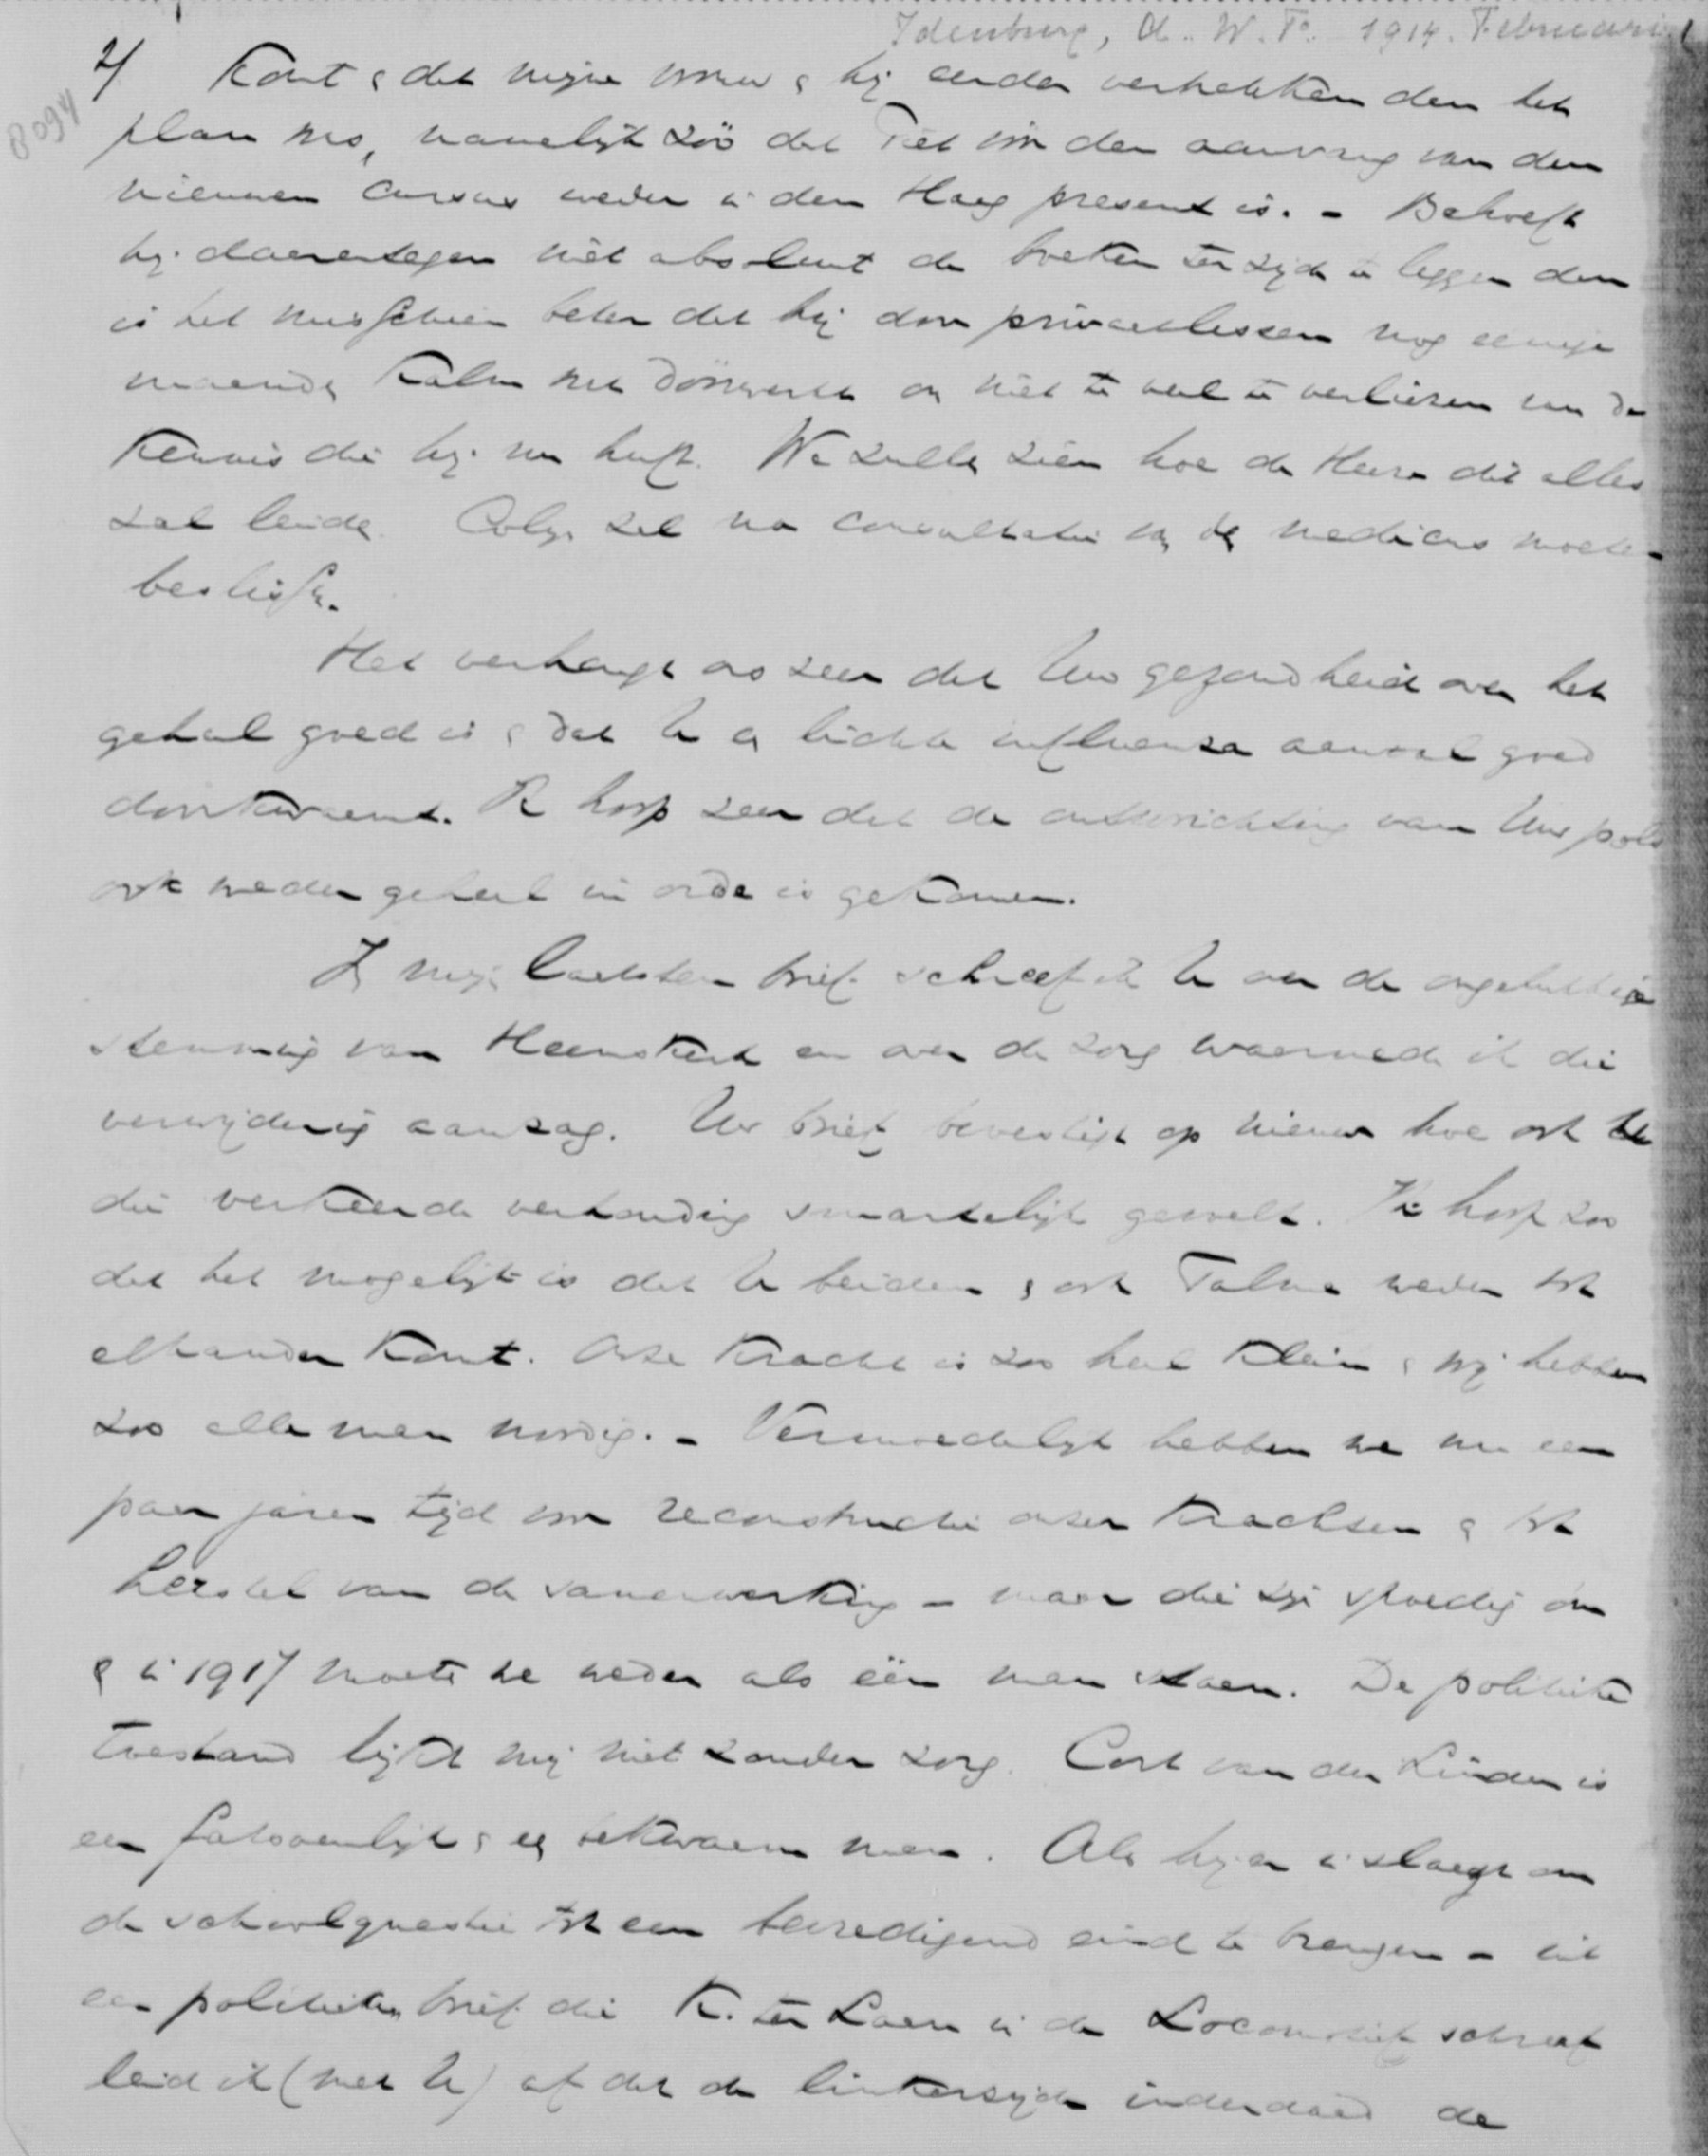 Idenburg, A.W.F. 1914. Februari
B094
2/ komt & dat mijne vrouw & hij eerder vertrekken dan het
plan was, namelijk zóó dat Piet vóór den aanvang van den
nieuwen cursus weder in den Haag present is. - Behoeft
hij daarentegen niet absoluut de boeken ter zijde te leggen dan
is het misschien beter dat hij door privaatlessen nog eenige
maanden kalm met dóórwerkt om niet te veel te verliezen van de
kennis die hij nu heeft. We zullen zien hoe de Heere dit alles
zal leiden. Colijn zal na consultatie van de medicus moeten
beslissen.
Het verheugt ons zeer dat Uw gezondheid over het
geheel goed is & dat U een lichte influenza aanval goed
doorkwaamt. Ik hoop zeer dat de ontwrichting van Uw pols
ook weder geheel in orde is gekomen.
In mijn laatsten brief schreef ik U over de ongelukkige
stemming van Heemskerk en over de zorg waarmede ik die
verwijdering aanzag. Uw brief bevestigt op nieuw hoe ook U
die verkeerde verhouding smartelijk gevoelt. Ik hoop zoo
dat het mogelijk is dat U beiden & ook Talma weder tot
elkander komt. Onze kracht is zoo heel klein & wij hebben
zoo alle man noodig. - Vermoedelijk hebben we nu een
paar jaren tijd voor reconstructie onzer krachten & tot
herstel van de samenwerking - maar die zijn spoedig om
& in 1917 moeten we weder als één man staan. De politieke
toestand lijkt mij niet zonder zorg. Cort van der Linden is
een fatsoenlijk & een bekwaam man. Als hij er in slaagt om
de schoolquaestie tot een bevredigend eind te brengen - uit
een politieken brief die K. ter Laan in de Locomotief schreef
leid ik (met U) af dat de linkerzijde inderdaad de